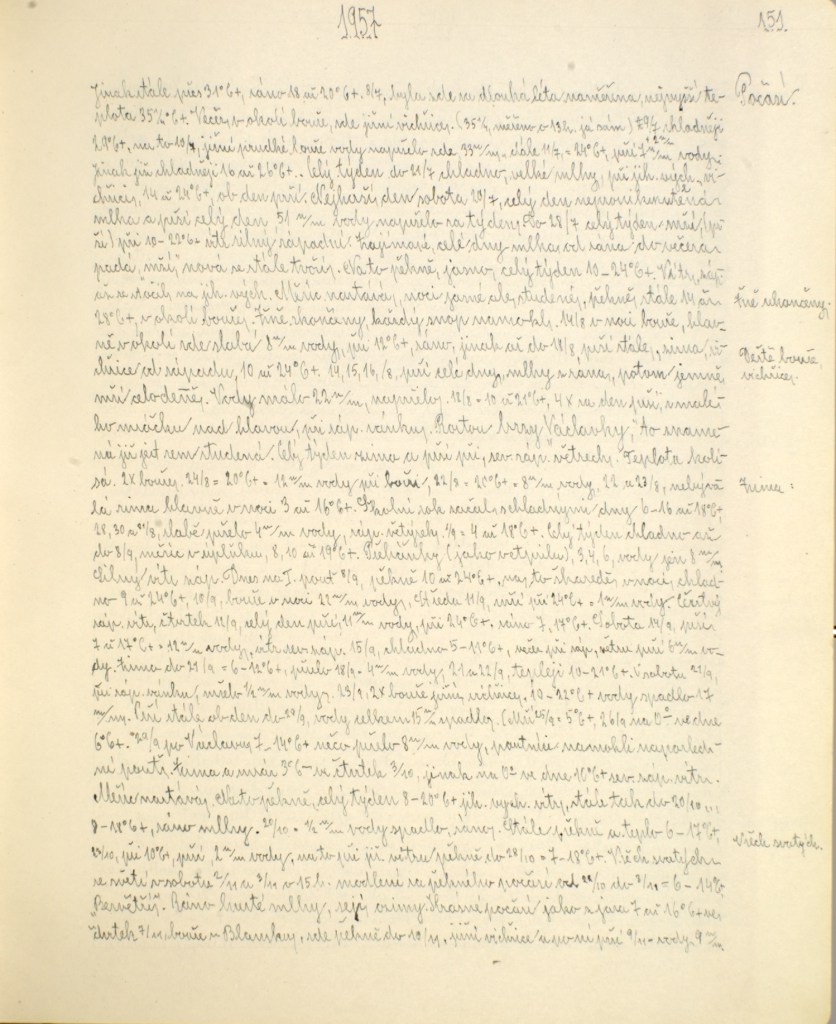 1957
151.
Jinak stále přes 31°C+, ráno 18 až 20°C+. 8/7, byla zde za dlouhá léta naměřena, nejvyšší te-
Počasí.
plota 35½°C+. Večer, v okolí bouře, zde jižní vichřice. (35½, měřeno o 13h. já sám) 9/7 chladněji
29°C+, na to 10/7, jižní prudké bouře vody napršelo zde 33 m/m, 11/7, = 24°C+, prší 7 m/m vody,
jinak již chladněji 16 až 26°C+. Celý týden do 21/7 chladno, velké mlhy, při jih. vých. vi-
chřici, 14 až 24°C+, ob den prší. Nejhorší den sobota 20/7, celý den
mlha a prší celý den 51 m/m vody napršelo za týden. Do 28/7 celý týden mží, (prší) při 10-22°C+ silný západní. Zajímavé, celé dny mlha, od rána do večera
padá, mží, nová se stále tvoří. Na to pěkně, jasno, celý týden 10-24°C+. Větry, záp.
až se stočily na jih. vých. Měsíc nastává, noci jasné ale studené, pěkně, stále 14 až
Žně skončeny,
28°C+, v okolí bouře. Žně skončeny, každý snop namokl. 14/8 v noci bouře, hlav-
ně v okolí zde slabá 8 m/m vody, při 12°C+, ráno, jinak až do 18/8 prší stále, zima, vi-
Deště bouře,
vichřice.
chřice od západu, 10 až 24°C+. 14, 15, 16,/8, prší celé dny, mlhy z rána, potom jemně
mží celodenně. Vody málo 22 m/m, napršelo. 18/8 = 10 až 21°C+, 4x za den prší, z malé-
ho mráčku nad hlavou, při záp. vánku. Rostou brzy Václavky, "to zname-
ná již jest zem studená. Celý týden zima a prší při, sev. záp." větrech. Teplota kolí-
sá. 2x bouře. 24/8 = 20°C+ = 12 m/m vody při bouři, 22/8 = 20°C+ = 8 m/m vody, 22 a 23/8, nebývá-
Zima =
lá zima hlavně v noci 3 až 16°C+. Školní rok začal, s chladnými dny 6-16 až 18°C+,
28, 30 a 31/8, slabě pršelo 4 m/m vody, záp. větry. 1/9 = 4 až 18°C+. Celý týden chladno až
do 8/9, měsíc v úplňku, 8, 10 až 19°C+. Přeháňky (jako v dubnu), 3, 4, 6, vody jen 8 m/m
Silný vítr záp. Dnes na I. pouť 8/9, pěkně 10 až 24°C+, na to škaredě, v noci, chlad-
no 9 až 24°C+, 10/9, bouře v noci 22 m/m vody, Středa 11/9, mží při 24°C+ = 1 m/m vody. Čerstvý
záp. vítr, čtvrtek 12/9, celý den prší, 11 m/m vody, při 24°C+. ráno 7, 17°C+. Sobota 14/9, prší
7 až 17°C+ = 12 m/m vody, vítr sev. záp. 15/9, chladno 5-11°C+, večer při záp. větru prší 6 m/m vo-
dy. Zima do 21/9 = 6-12°C+, pršelo 18/9 = 4 m/m vody, 21 a 22/9, tepleji 10-21°C+. V sobotu 21/9,
při záp. vánku, mžilo ½ m/m vody. 23/9, 2x bouře, jižní vichřice. 10-22°C+ vody spadlo 17
m/m. Prší stále ob den do 29/9, vody celkem 15 m/m spadlo. 25/9 = 5°C+, 26/9 na 0° ve dne
6°C+. 29/9 po Václavu, 7-14°C+ něco pršelo 8 m/m vody, poutníci namokli naposled-
né pouti. Zima a mráz 3°C- ve čtvrtek 3/10, jinak na 0° ve dne 10°C+ sev. záp. vítr.
Měsíc nastává. Na to pěkně, celý týden 8-20°C+ jih. vých. větry, stále tak do 20/10
8-18°C+, ráno mlhy. 20/10 = ½ m/m vody spadlo, ráno. Stále pěkně a teplo 6-17°C+,
Všech svatých.
23/10, při 10°C+, prší, 2 m/m vody, na to při již. větru pěkně do 28/10 = 7-18°C+. Všech svatých
se světí v sobotu 2/11 a 3/11 v 15 h. modlení za pěkného počasí od 28/10 do 3/11 = 6-14°C,
"Bezvětří". Ráno husté mlhy, sejí ozimy. Krásné počasí jako z jara 7 až 16°C+ ve
čtvrtek 7/11, bouře u Blanska, zde pěkně do 10/11, jižní vichřice a první prší 9/11 = vody 9 m/m.